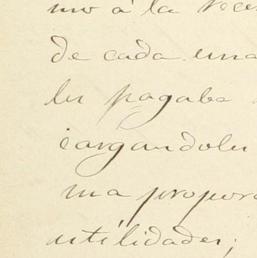 mo á la vece
de cada una
les pagaba
cargandoles
ma propor
utilidades;